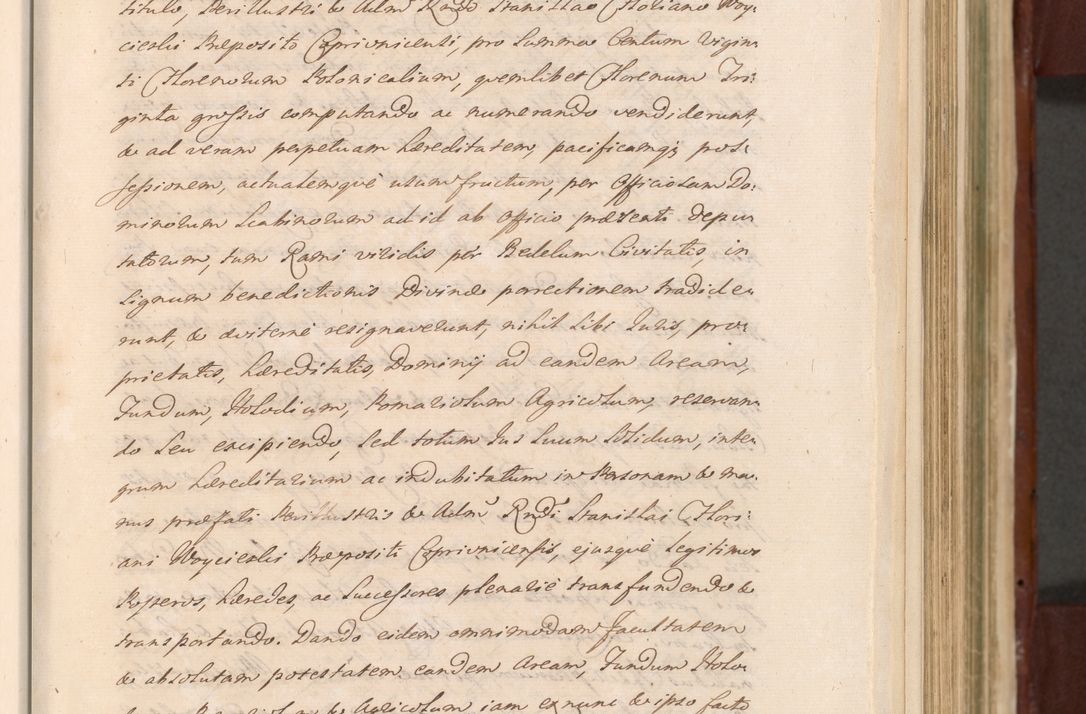 titulo, Perillustri & Adm. Rndo Stanislao Floriano Woy:
cieski Præposito Coprivnicensi, pro Summa Centum Vigin:
ti Florenorum Polonicalium, quemlibet Florenum Tri:
ginta grossis computando ac numerando vendiderunt,
& ad veram perpetuam Læreditatem, pacificamq; pos:
sessionem, actualemque usumfructum, per Officiosam Do:
minorum Scabinorum ad id ab Officio præsenti depu:
tatorum, tum Rami viridis per Bedelum Civitatis, in
Signum benedictionis Divinæ porrectionem tradide:
runt, & æviterne resignaverunt, nihil Sibi Juris, pro:
prietatis, Læreditatis, Dominij ad eandem Aream,
Fundum, Holodium, Pomariolum Agricolum, reservan:
do Seu excipiendo, Sed totum Jus Suum Solidum, inte:
grum Læreditarium ac indubitatum in Personam & ma:
nus præfati Perillustris & Adm. Rndi Stanislai Flori:
ani Woycieski Præpositi Coprivnicensis, ejusque Legitimos
Posteros, Læredes, ac Successores plenarie transfundendo &
transportando. Dando eidem omnimodam facultatem
& absolutam potestatem, eandem Aream, Fundum Holo:
& Agricolum iam ex nunc & ipso facto